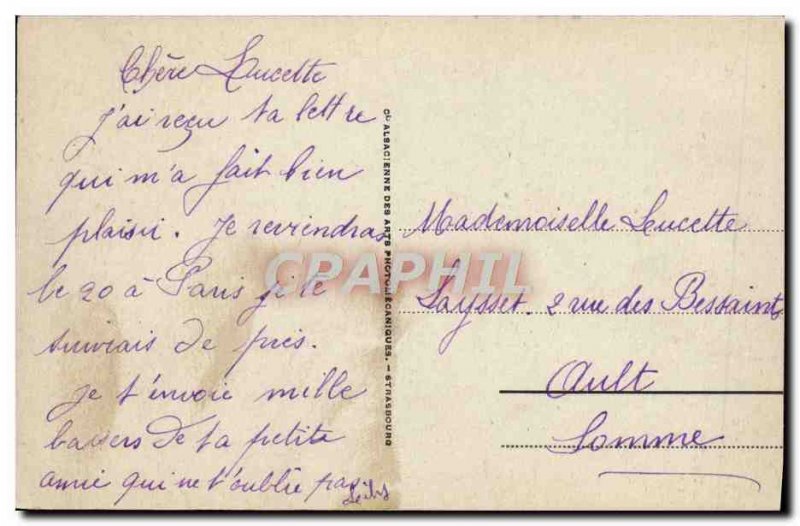 Chère Lucette
j'ai reçu ta lettre
qui m'a fait bien
plaisir. Je reviendras
le 20 à Paris je te
suivrais de près.
Je t'envoie mille
baisers de ta petite
amie qui ne t'oublie pas
CIE ALSACIENNE DES ARTS PHOTOMÉCANIQUES. — STRASBOURG
Mademoiselle Lucette
Laysset. 2 rue des Bessaints
Ault
Somme
CPAPHIL